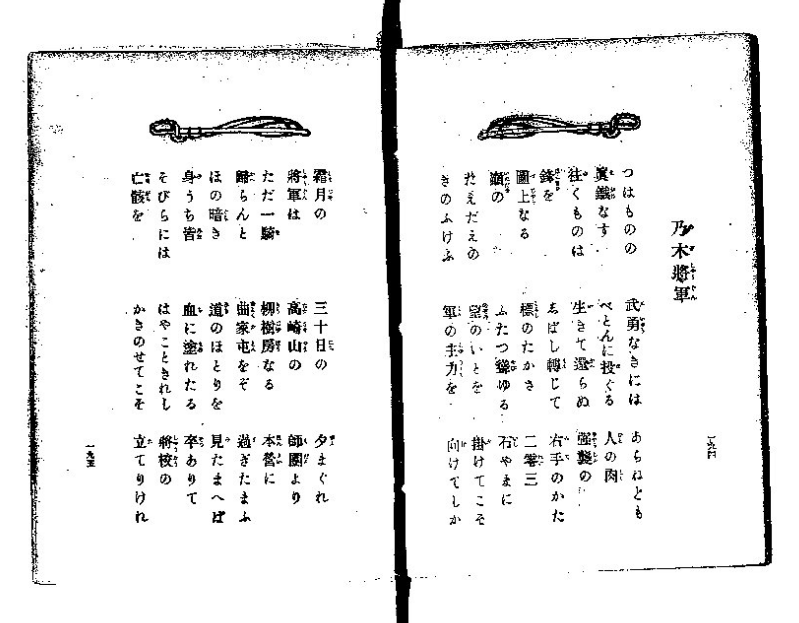 乃木將軍
つはものの 武勇なきには あらねども
眞鐵なす べとんに投ぐる 人の肉
往くものは 生きて還らぬ 強襲の
鋒を ゑばし轉じて 右手のかた
圖上なる 標のたかさ 二零三
嶺の ふたつ聳ゆる 石やまに
たえだえの 望のいとを 掛けてこそ
きのふけふ 軍の主力を 向けてしか
一九四
霜月の 三十日の 夕まぐれ
將軍は 高崎山の 師團より
ただ一騎 柳樹房なる 本營に
歸らんと 曲家屯をぞ 過ぎたまふ
ほの暗き 道のほとりを 見たまへば
身うち皆 血に塗れたる 卒ありて
そびらには はやこときれし 將校の
亡骸を かきのせてこそ 立てりけれ
一九五